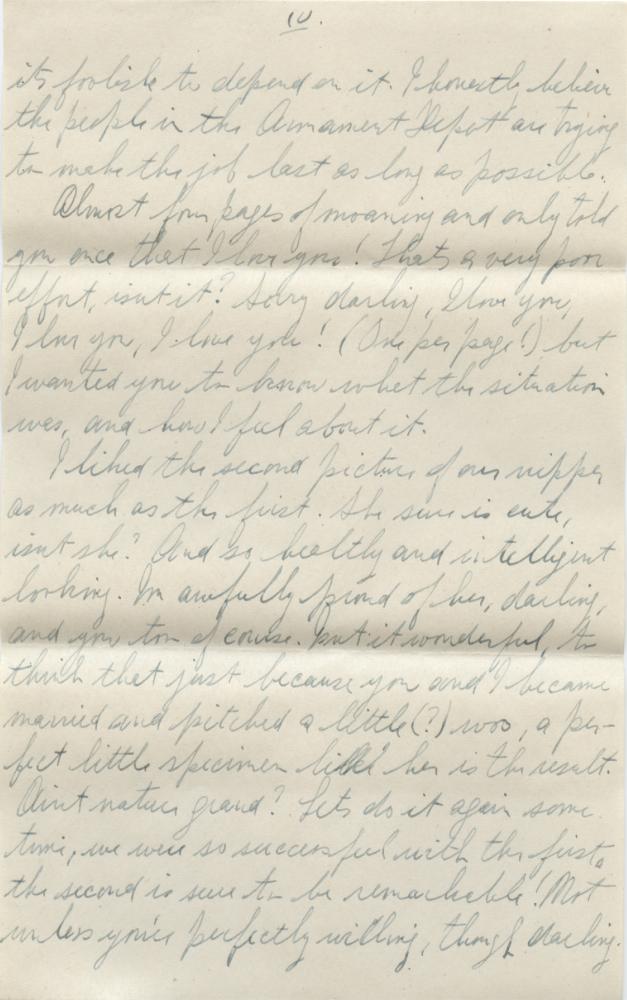 10.
its foolish to depend on it. I honestly believe
the people in the Armament Depot are trying
to make the job last as long as possible.
Almost four pages of moaning and only told
you once that I love you! Thats a very poor
effort, isnt it? Sorry darling, I love you,
I love you, I love you! (One per page!) but
I wanted you to know what the situation
was, and how I feel about it.
I liked the second picture of our nipper
as much as the first. She sure is cute,
isnt she? And so healthy and intelligent
looking. Im awfully proud of her, darling,
and you too of course. Isnt it wonderful, to
think that just because you and I became
married and pitched a little (?) woo, a per-
fect little specimen like her is the result.
Aint nature grand? Lets do it again some
time, we were so successful with the first,
the second is sure to be remarkable! Not
unless you're perfectly willing, though darling.